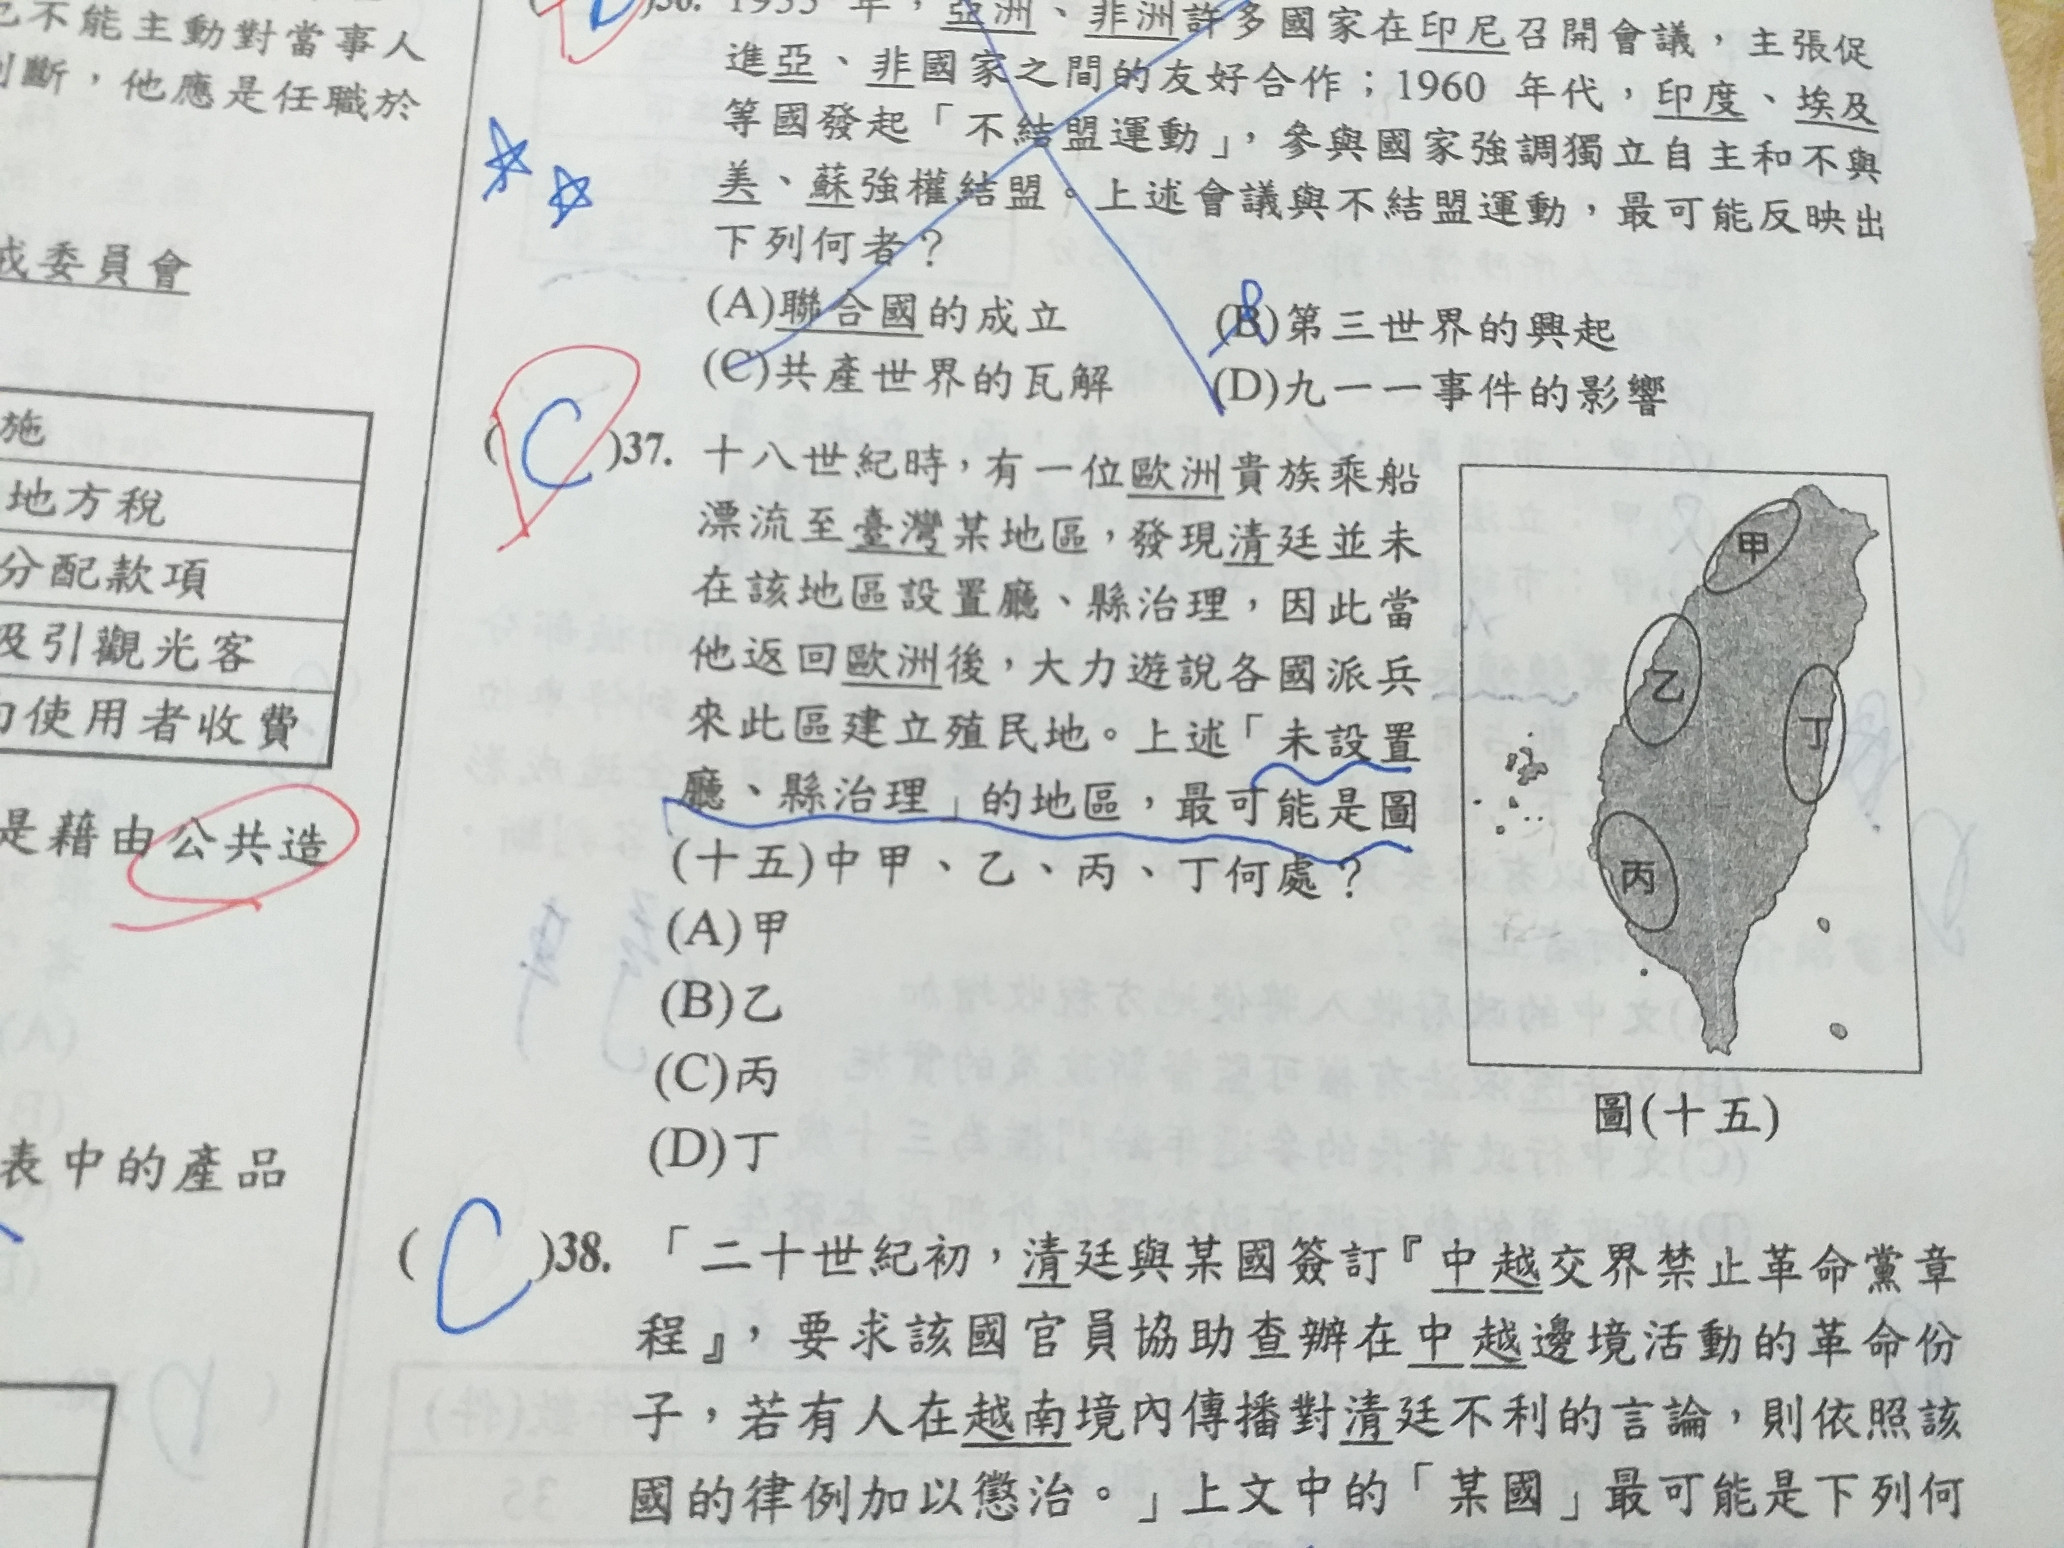 不能主動對當事人
斷，他應是任職於
委員會
施
地方稅
分配款項
吸引觀光客
向使用者收費
是藉由公共造
表中的產品
年，亞洲、非洲許多國家在印尼召開會議，主張促
進亞、非國家之間的友好合作；1960 年代，印度、埃及
等國發起「不結盟運動」，參與國家強調獨立自主和不與
美、蘇強權結盟。上述會議與不結盟運動，最可能反映出
下列何者？
(A)聯合國的成立 (B)第三世界的興起
(C)共產世界的瓦解 (D)九一一事件的影響
( C )37. 十八世紀時，有一位歐洲貴族乘船
漂流至臺灣某地區，發現清廷並未
在該地區設置廳、縣治理，因此當
他返回歐洲後，大力遊說各國派兵
來此區建立殖民地。上述「未設置
廳、縣治理」的地區，最可能是圖
(十五)中甲、乙、丙、丁何處？
(A)甲
(B)乙
(C)丙
(D)丁
甲
乙
丁
丙
圖(十五)
( C )38. 「二十世紀初，清廷與某國簽訂『中越交界禁止革命黨章
程』，要求該國官員協助查辦在中越邊境活動的革命份
子，若有人在越南境內傳播對清廷不利的言論，則依照該
國的律例加以懲治。」上文中的「某國」最可能是下列何